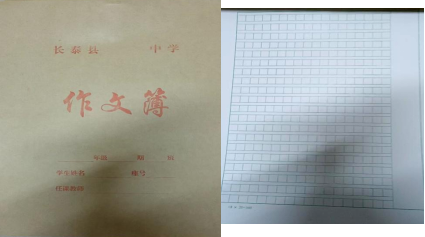 长泰县 中学
作文簿
年级 班
学生姓名 座号
任课教师